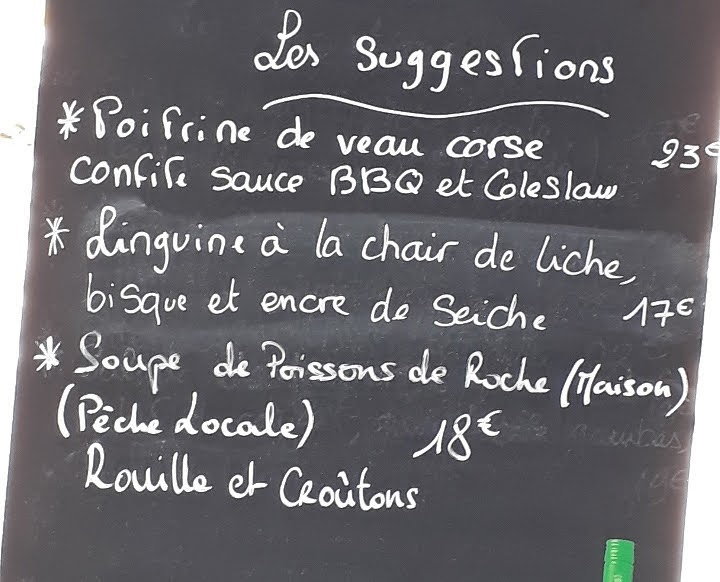 Les Suggestions
* Poitrine de veau corse
confite sauce BBQ et Coleslaw 23€
* Linguine à la chair de liche,
bisque et encre de Seiche 17€
* Soupe de Poissons de Roche (Maison)
(Pêche Locale) 18€
Rouille et Croûtons